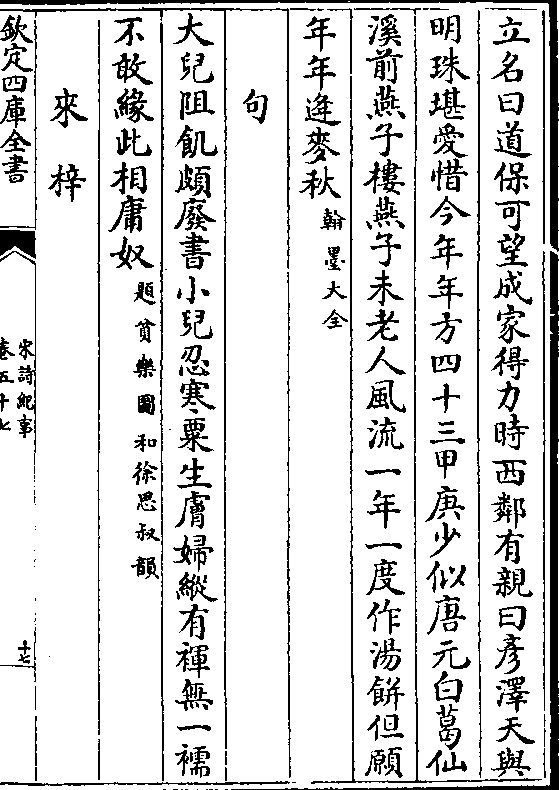 立名曰道保可望成家得力時西鄰有親曰彥澤天與
明珠堪愛惜今年年方四十三甲庚少似唐元白葛仙
溪前燕子樓燕子未老人風流一年一度作湯餅但願
年年逢麥秋翰墨大全
句
大兒阻飢頗廢書小兒忍寒粟生膚婦縱有褌無一襦
不敢緣此相庸奴題貧樂圖和徐思叔韻
來梓
欽定四庫全書
宋詩紀事
卷五十七
十七